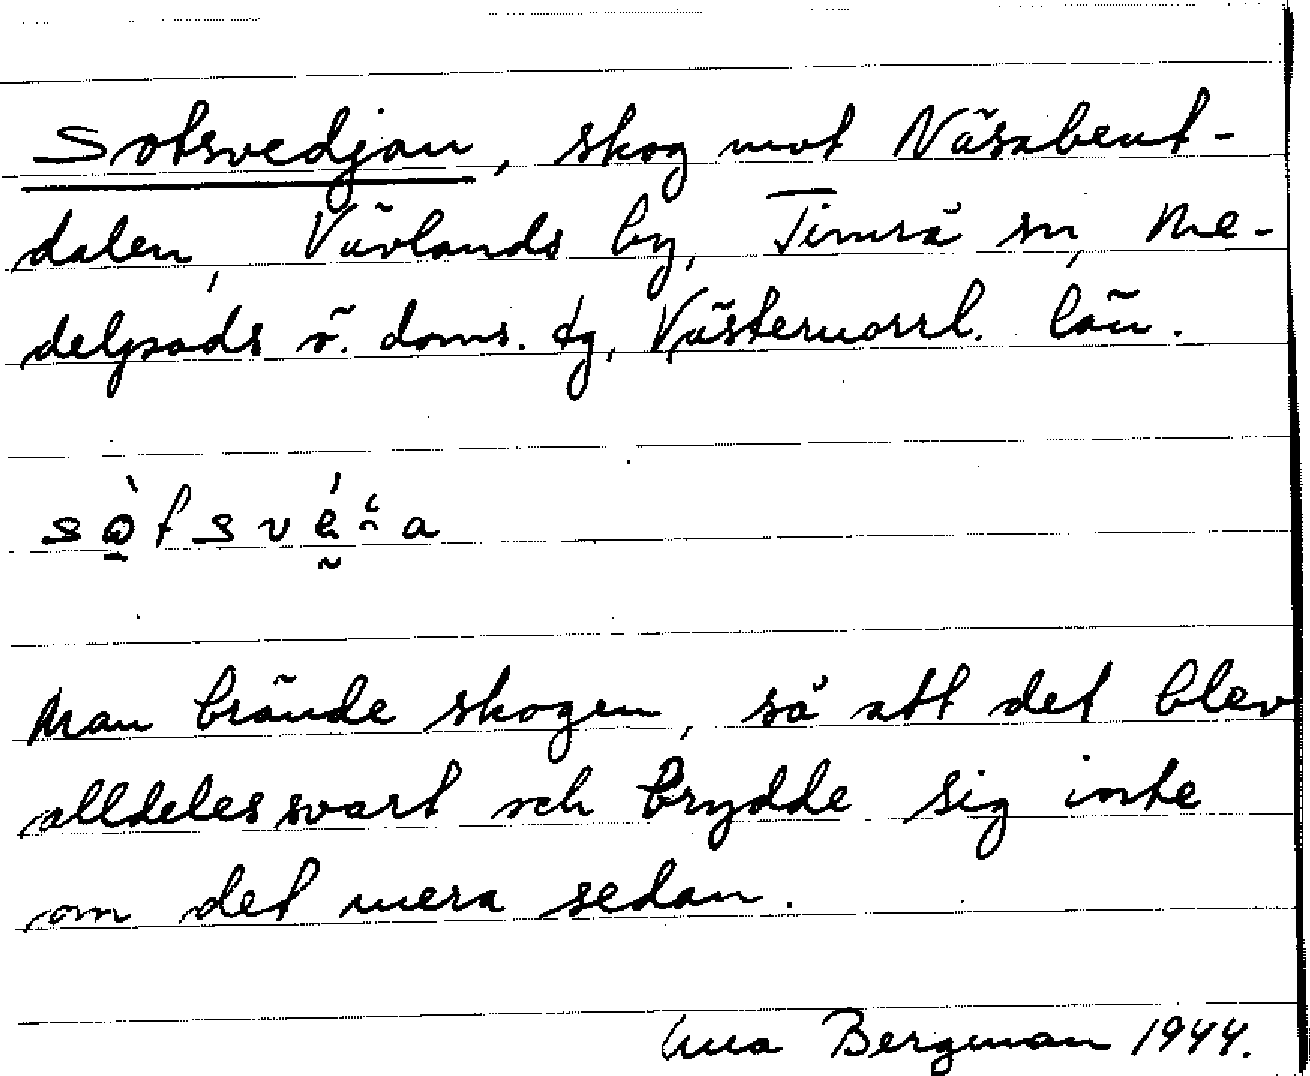 Sotsvedjan, skog mot Näsabeut-
dalen, Vävlands by, Timrå sn, Me-
delpads ö. doms. tg, Västernorrl. län.
Man brände skogen, så att det blev
alldeles svart och brydde sig inte
om det mera sedan.
Bergman 1944.